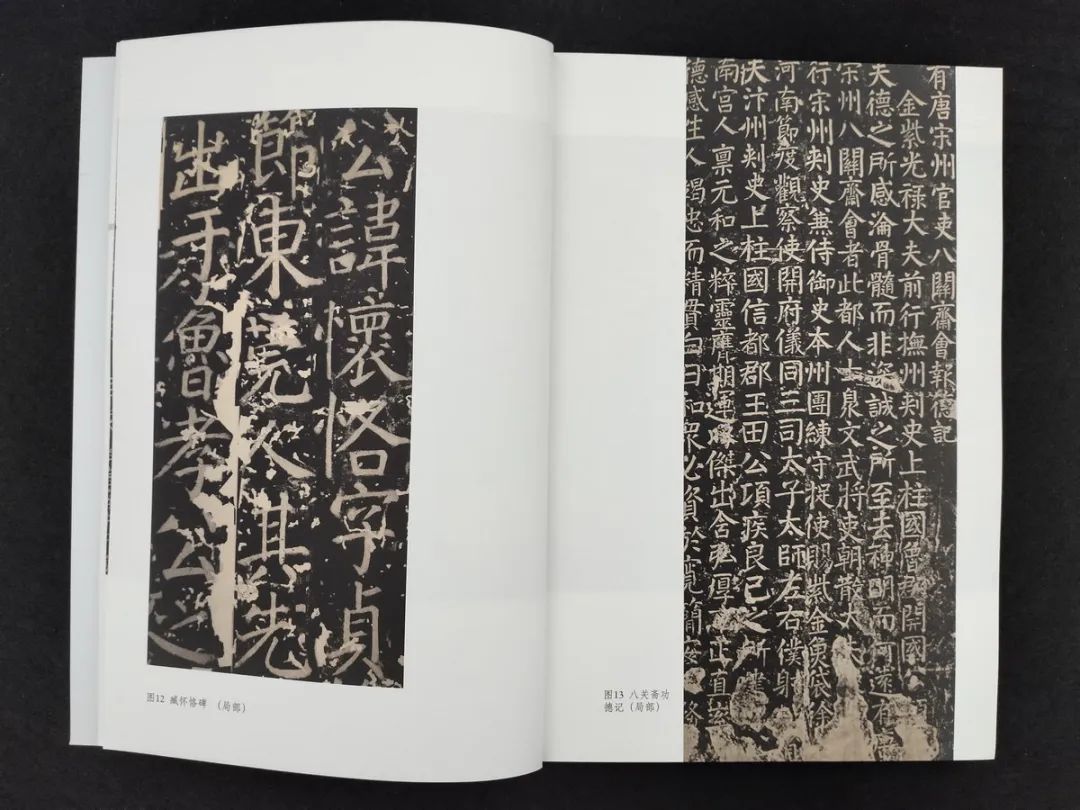 公諱懷恪字貞
節東莞人其先
出于魯孝公
图12 臧怀恪碑 （局部）
有唐宋州官吏八關齋會報德記
金紫光禄大夫前行撫州刾史上柱國魯郡開國
夫德之所感淪骨髓而非深誠之所至去神明而何遠有
宋州八關齋會者此都人士衆文武將吏朝散大夫
行宋州刾史兼侍御史本州團練守捉使賜紫金魚袋徐
河南節度觀察使開府儀同三司太子太師左右僕射
夫汴州刾史上柱國信都郡王田公頃疾良已之所建
南宫人禀元和之粹靈膺期運傑出含弘厚下正直
德感生人竭忠而精貫白日和衆必資於寬簡安
图13 八关斋功
德记（局部）